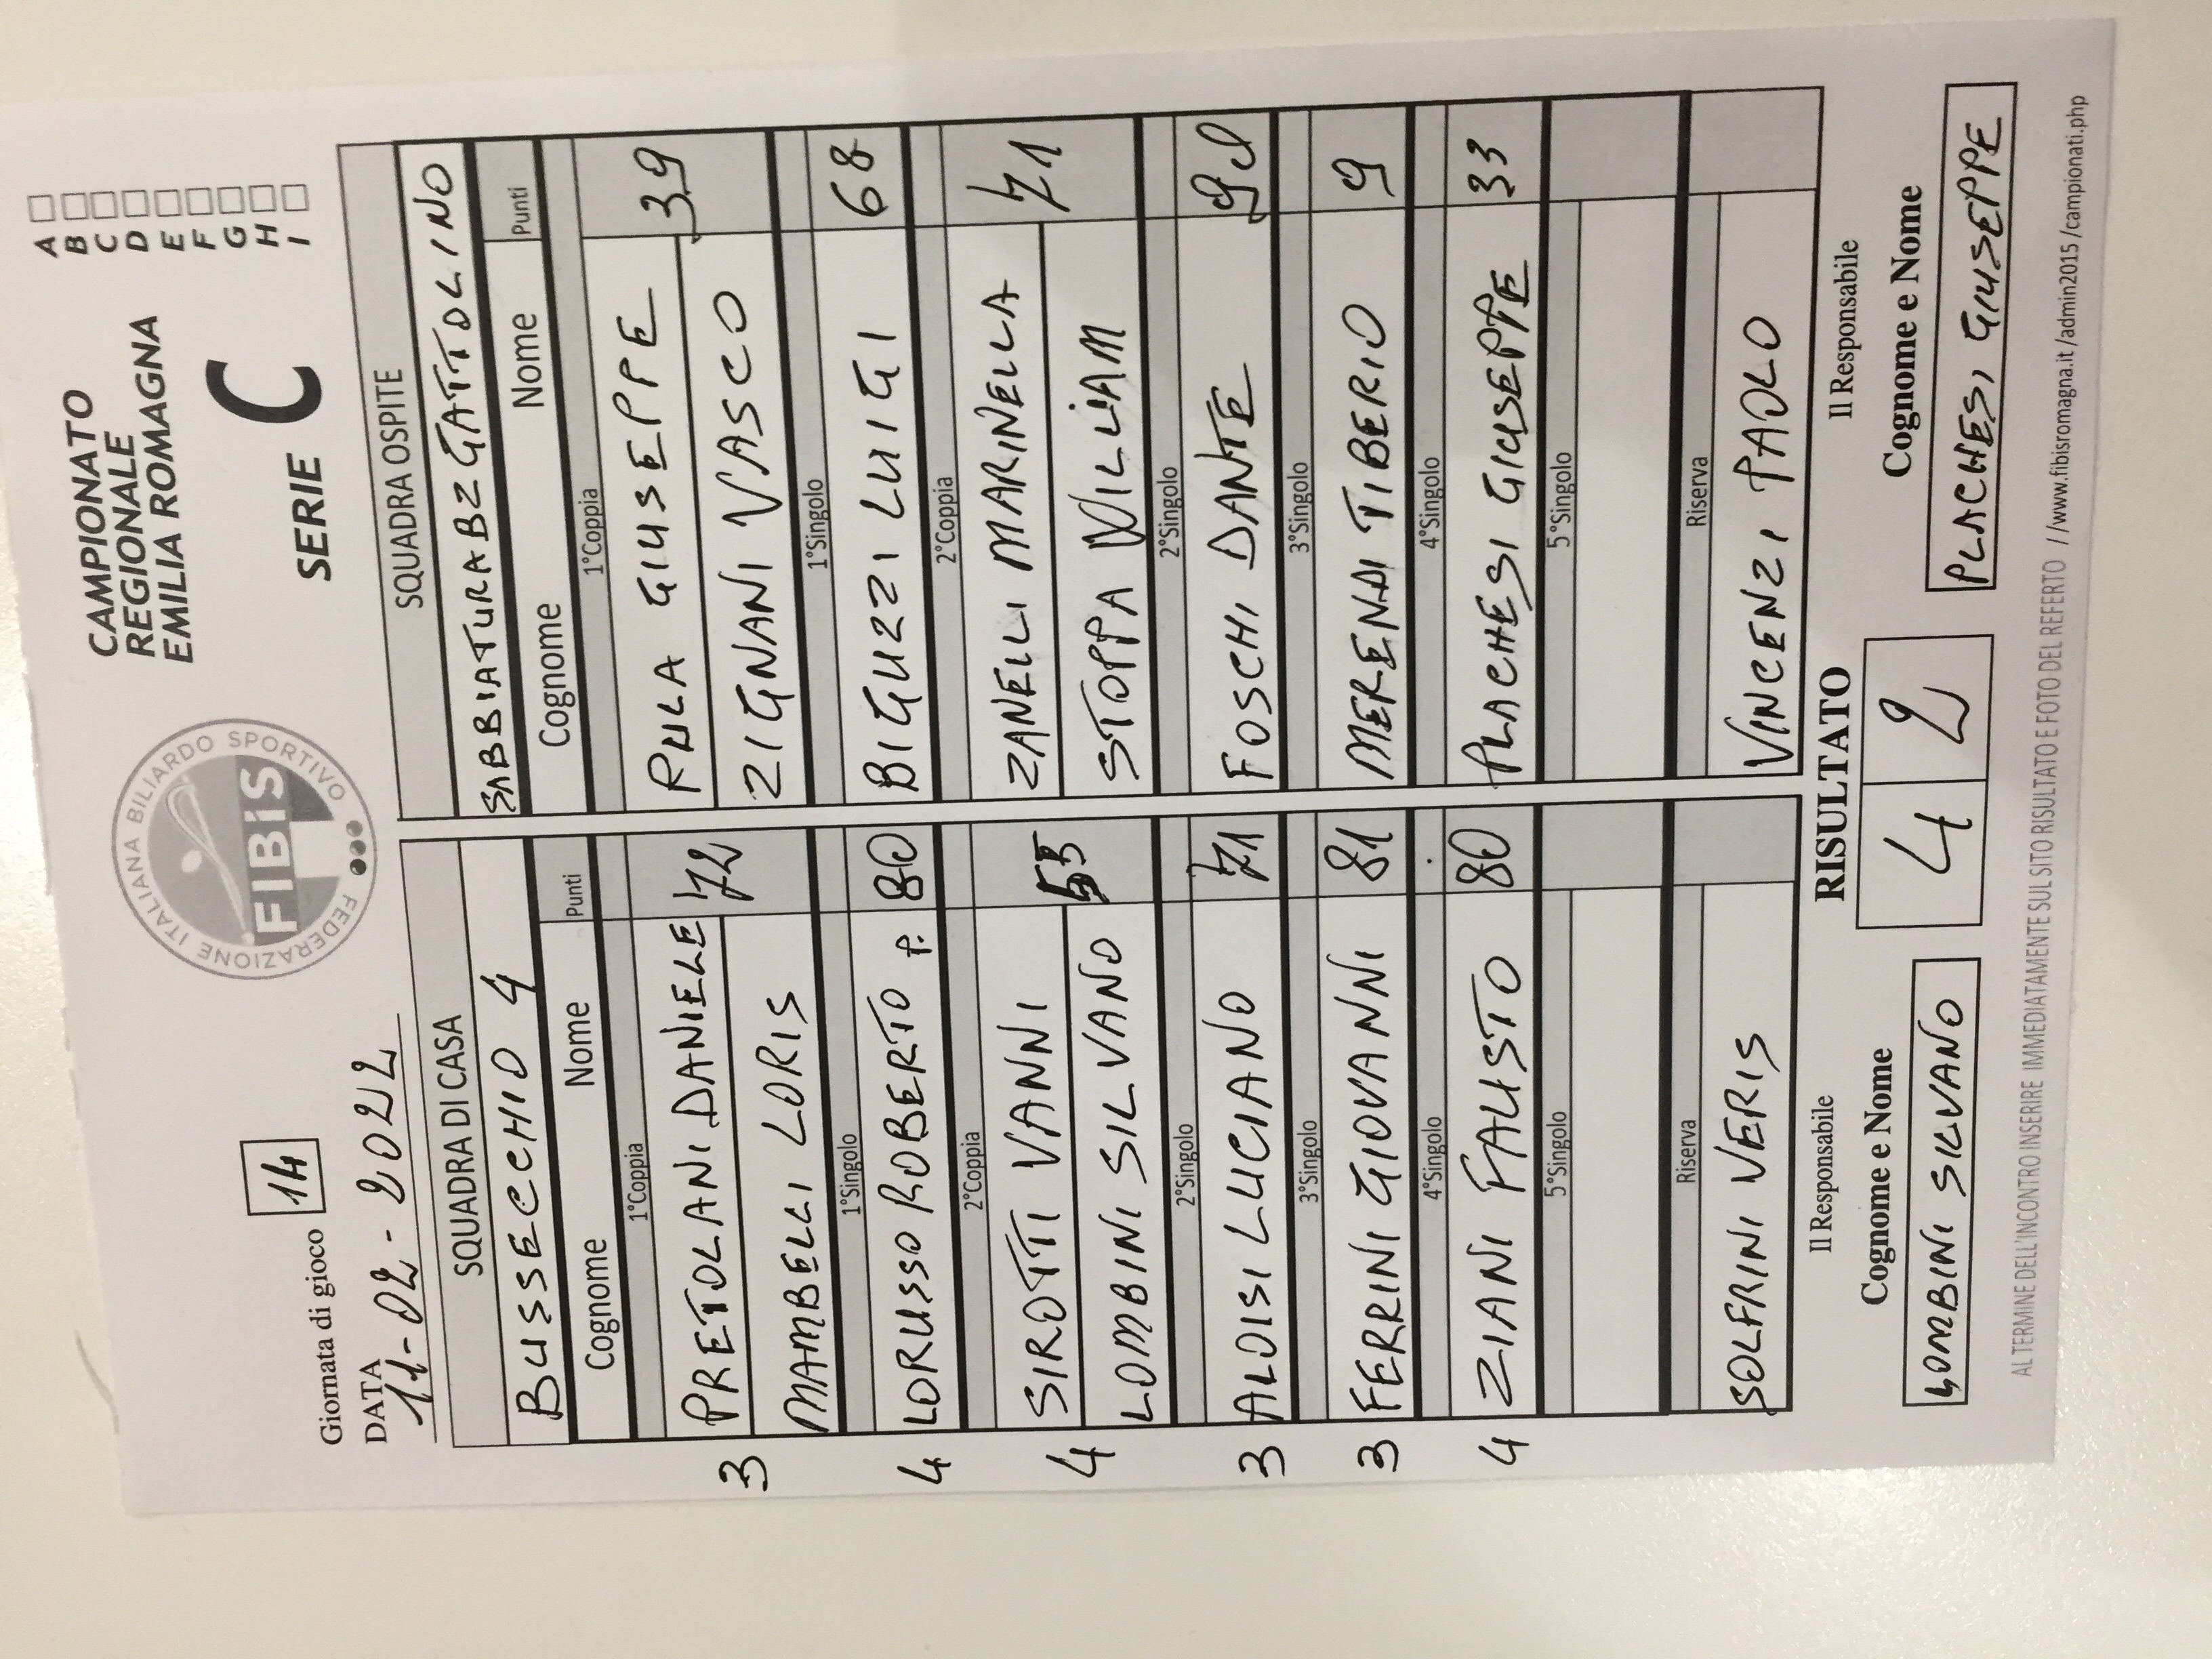 CAMPIONATO
REGIONALE
EMILIA ROMAGNA
SERIE C
A
B
C
D
E
F
G
H
I
FEDERAZIONE ITALIANA BILIARDO SPORTIVO
FIBiS
Giornata di gioco 14
DATA
11-02-2022
SQUADRA DI CASA
BUSSECCHIO 4
Cognome Nome Punti
1°Coppia
3 PRETOLANI DANIELE 72
MAMBELLI LORIS
1°Singolo
4 LORUSSO ROBERTO P. 80
2°Coppia
4 SIROTTI VANNI 55
LOMBINI SILVANO
2°Singolo
3 ALOISI LUCIANO 71
3°Singolo
3 FERRINI GIOVANNI 81
4°Singolo
4 ZIANI FAUSTO 80
5°Singolo
Riserva
SOLFRINI VERIS
SQUADRA OSPITE
SABBIATURA BZ GATTOLINO
Cognome Nome Punti
1°Coppia
GIUSEPPE 39
ZIGNANI VASCO
1°Singolo
BIGUZZI LUIGI 68
2°Coppia
ZANELLI MARINELLA 71
STOPPA WILLIAM
2°Singolo
FOSCHI DANTE
3°Singolo
MERENDI TIBERIO 9
4°Singolo
PLACHESI GIUSEPPE 33
5°Singolo
Riserva
VINCENZI PAOLO
Il Responsabile
Cognome e Nome
LOMBINI SILVANO
RISULTATO
4 2
Il Responsabile
Cognome e Nome
PLACHESI GIUSEPPE
AL TERMINE DELL'INCONTRO INSERIRE IMMEDIATAMENTE SUL SITO RISULTATO E FOTO DEL REFERTO //www.fibisromagna.it/admin2015/campionati.php